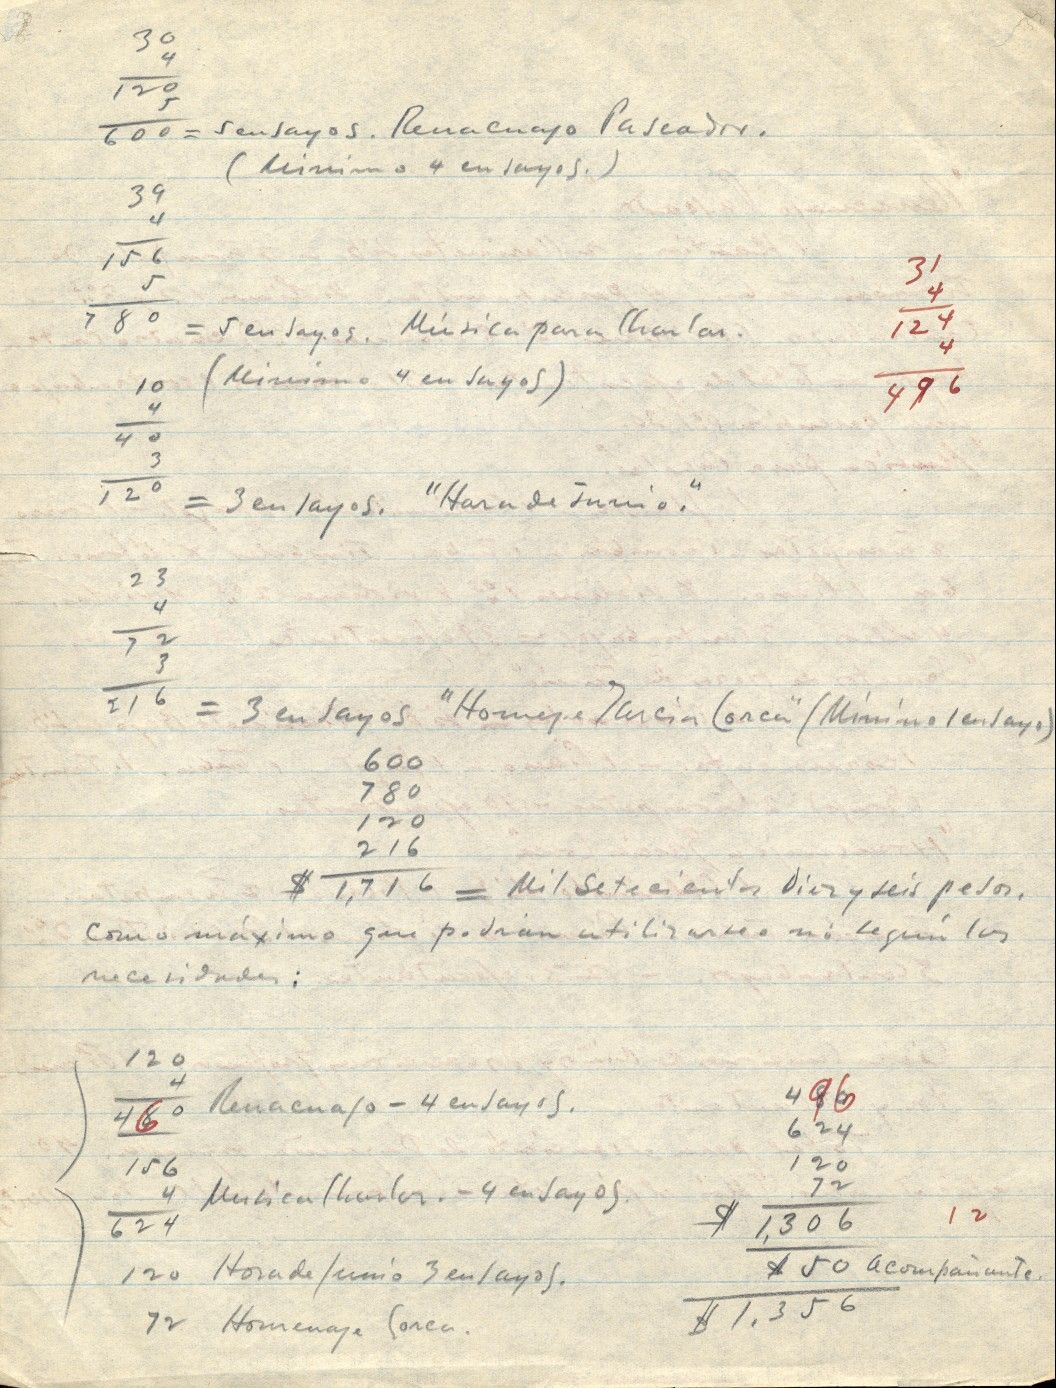 30
4
120
5
600 = 5 ensayos. Renacuajo Paseador.
(Mínimo 4 ensayos.)
39
4
156
5
780 = 5 ensayos. Música para Charlar.
(Mínimo 4 ensayos)
31
4
124
4
496
10
4
40
3
120 = 3 ensayos. "Hora de Junio."
23
4
72
3
216 = 3 ensayos "Homeje García Lorca" (Mínimo 1 ensayo)
600
780
120
216
$ 1,716 = Mil Setecientos Diez y seis pesos.
como máximo que podrán utilizarse o no según las
necesidades:
120
4
460 Renacuajo - 4 ensayos.
156
4 Musica Charlar. - 4 ensayos.
624
120 Hora de Junio 3 ensayos.
72 Homenaje Lorca.
496
624
120
72
$ 1,306 12
$ 50 acompañante.
$ 1,356